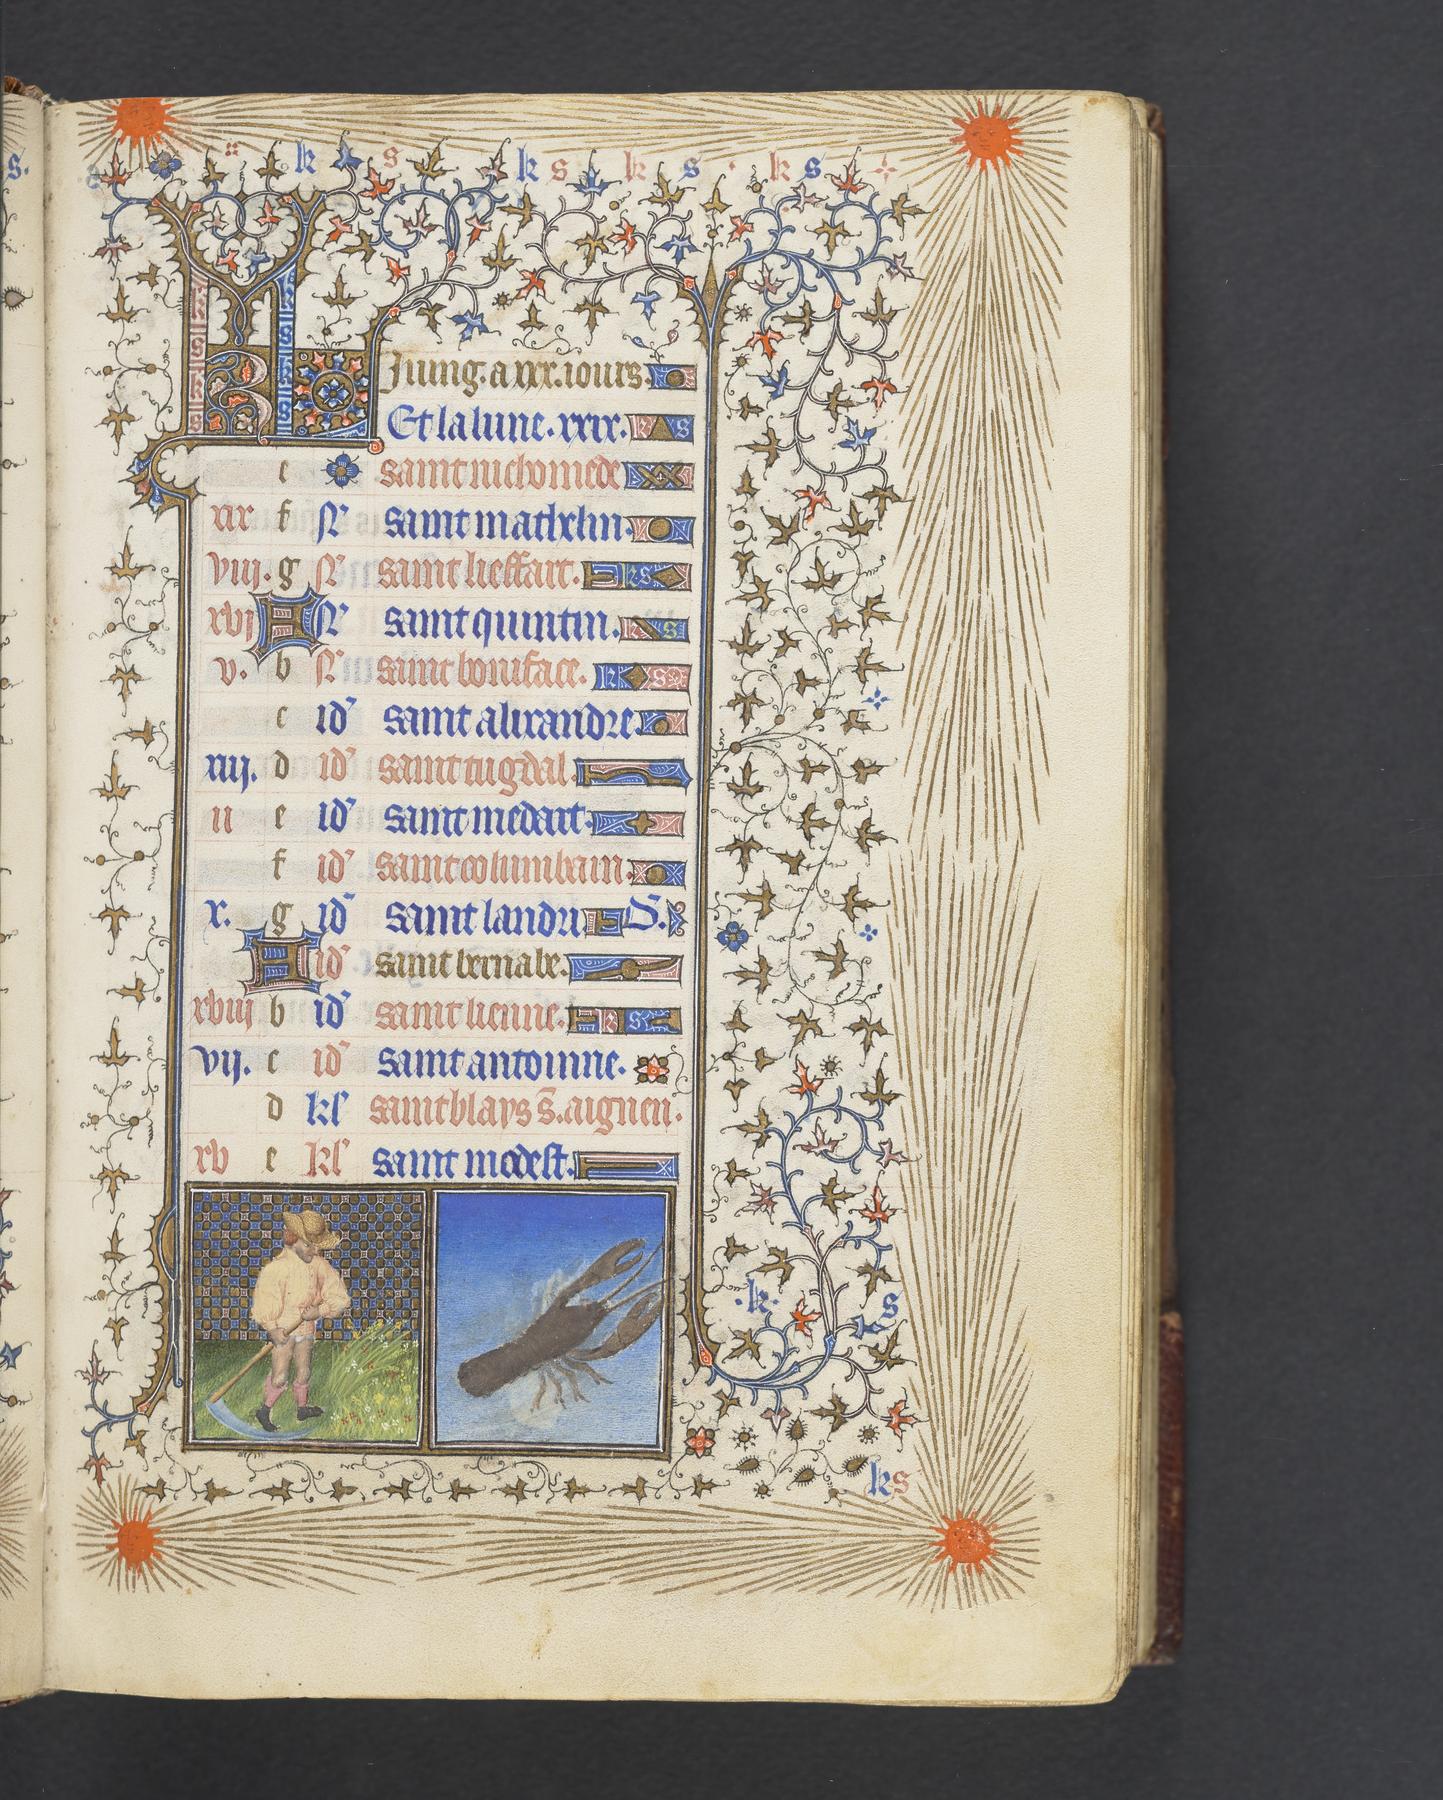 k s k s k s k s
KL Juing. a xxx. iours.
Et la lune. xxix.
e saint nichomede
xix f N' saint mathelin.
viij. g N' saint lieffart. ks
xvj A N' saint quintin. k s
v. b N' saint boniface. k s
c id' saint alixandre
xiij. d id' saint tugdal.
ii e id' saint medart.
f id' saint columbain.
x. g id' saint landri S.
A id' saint bernabe.
xviij b id' saint lienne. k s
vij. c id' saint antoinne.
d kl' saint blays s. aignen.
xv e kl' saint modest.
k. s
ks